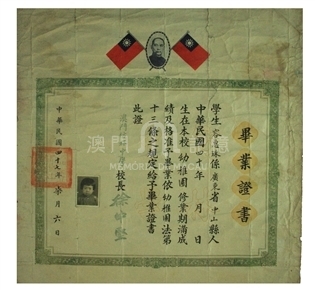 畢業證書
學生容係廣東省中山縣人
中華民國四十年 月 日
生在本校幼稚園修業期滿成
績及格准予畢業依幼稚園法第
十三條之規定給予畢業證書
此證
校長
中華民國四十七年 月六日
澳門